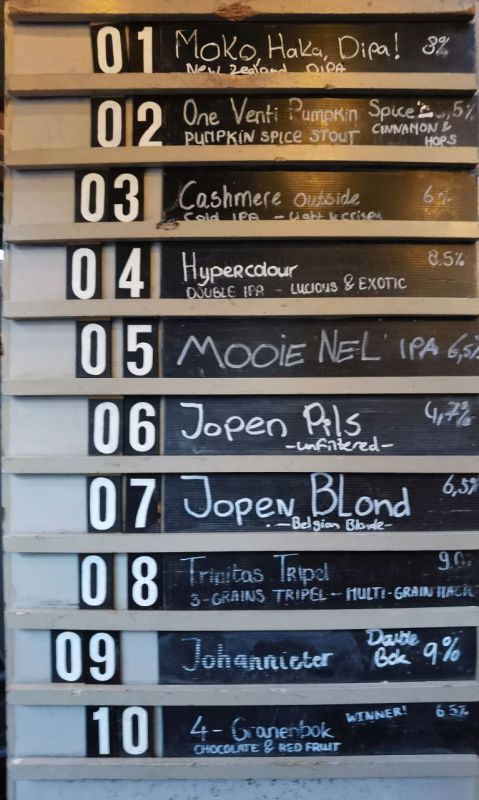 01 Moko, Haka, Dipa! 8%
New Zealand DIPA
02 One Venti Pumpkin Spice 5%
PUMPKIN SPICE STOUT CINNAMON &
HOPS
03 Cashmere Outside 6%
Cold IPA - Light & Crispy
04 Hypercolour 8.5%
DOUBLE IPA - LUCIOUS & EXOTIC
05 MOOIE NEL IPA 6,5%
06 Jopen Pils 4,7%
-unfiltered-
07 Jopen BLond 6,5%
-Belgian Blonde-
08 Trinitas Tripel 9.0
3-GRAINS TRIPEL - MULTI-GRAIN MAGIC
09 Johannieter Double
Bok 9%
10 4-Granenbok WINNER! 6.5%
CHOCOLATE & RED FRUIT